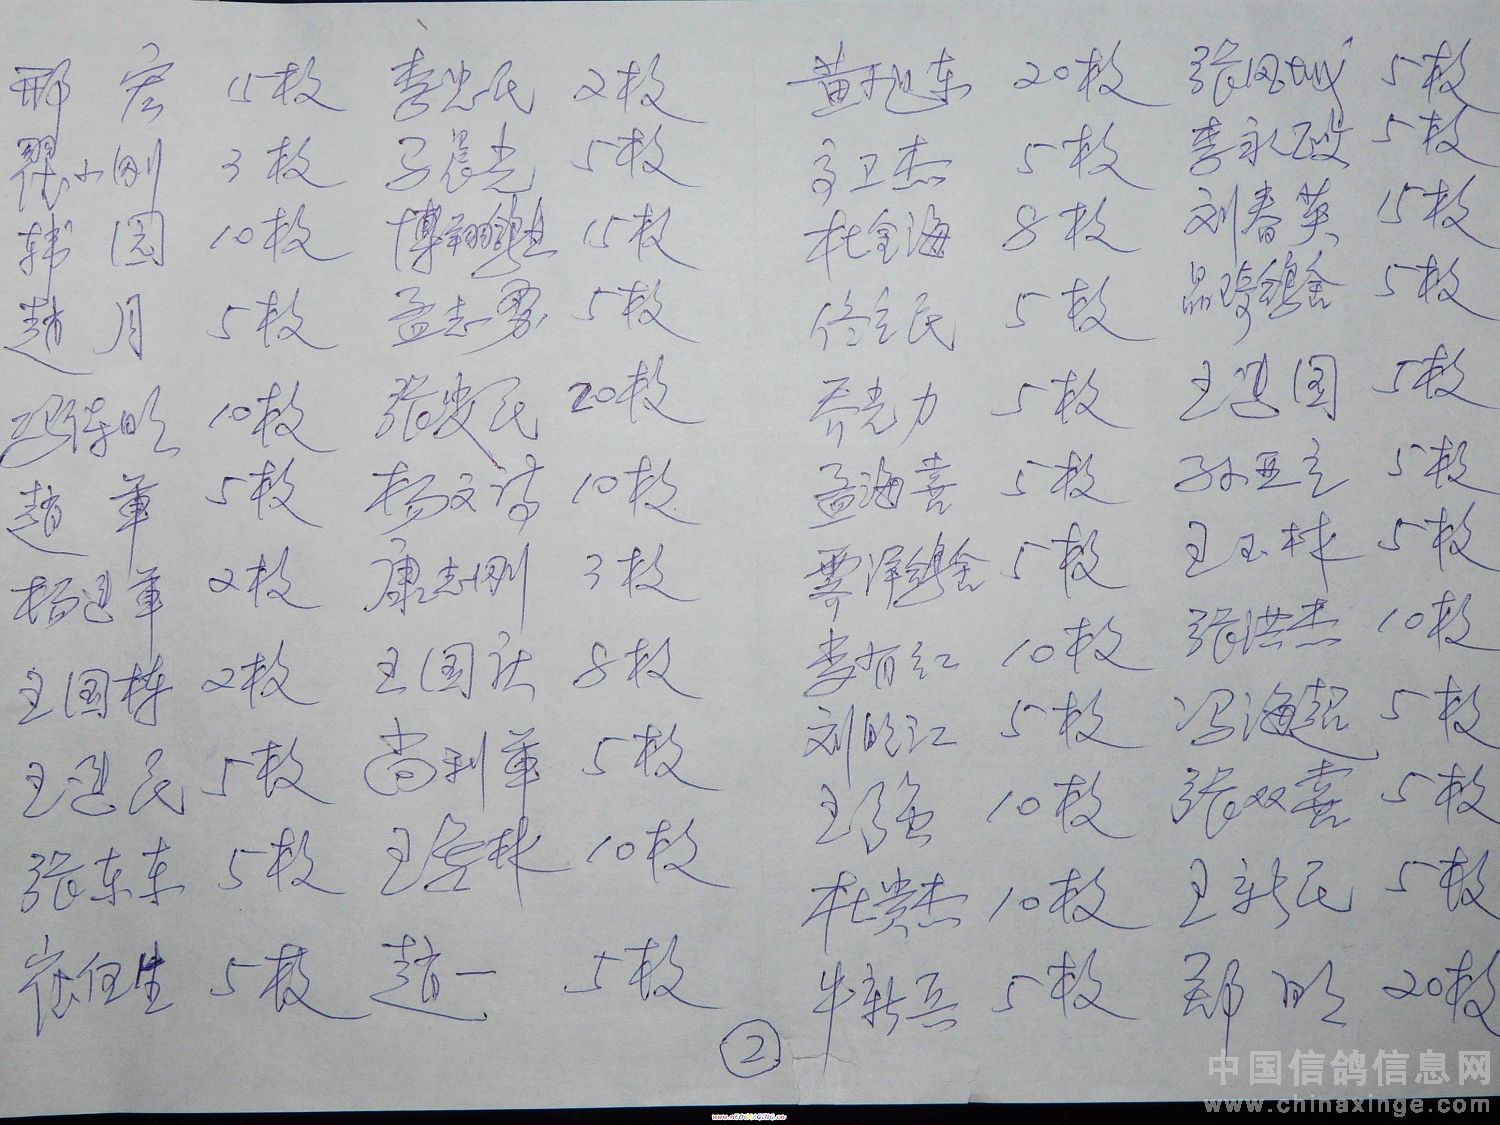 邢 宏 15枚 李忠民 2枚 黄旭东 20枚 张凤城 5枚
翟小刚 3枚 马晨光 5枚 高卫杰 5枚 李永政 5枚
韩 园 10枚 博翔鸽 15枚 杜金海 8枚 刘春英 15枚
赵 月 5枚 孟志勇 5枚 佟立民 5枚 晶琦鸽舍 5枚
冯 明 10枚 张安民 20枚 乔克力 5枚 王进国 5枚
赵 军 5枚 杨文 10枚 孟海喜 5枚 孙亚立 5枚
杨进军 2枚 康志刚 3枚 贾洋鸽舍 5枚 王玉林 5枚
王国栋 2枚 王国庆 8枚 李有红 10枚 张洪杰 10枚
王进民 5枚 尚利军 5枚 刘明江 5枚 冯海超 5枚
张东东 5枚 王 林 10枚 王强 10枚 张双喜 5枚
崔任生 5枚 赵一 5枚 杜贵杰 10枚 王新民 5枚
牛新兵 5枚 郑 明 20枚
2
中国信鸽信息网
www.chinaxinge.com